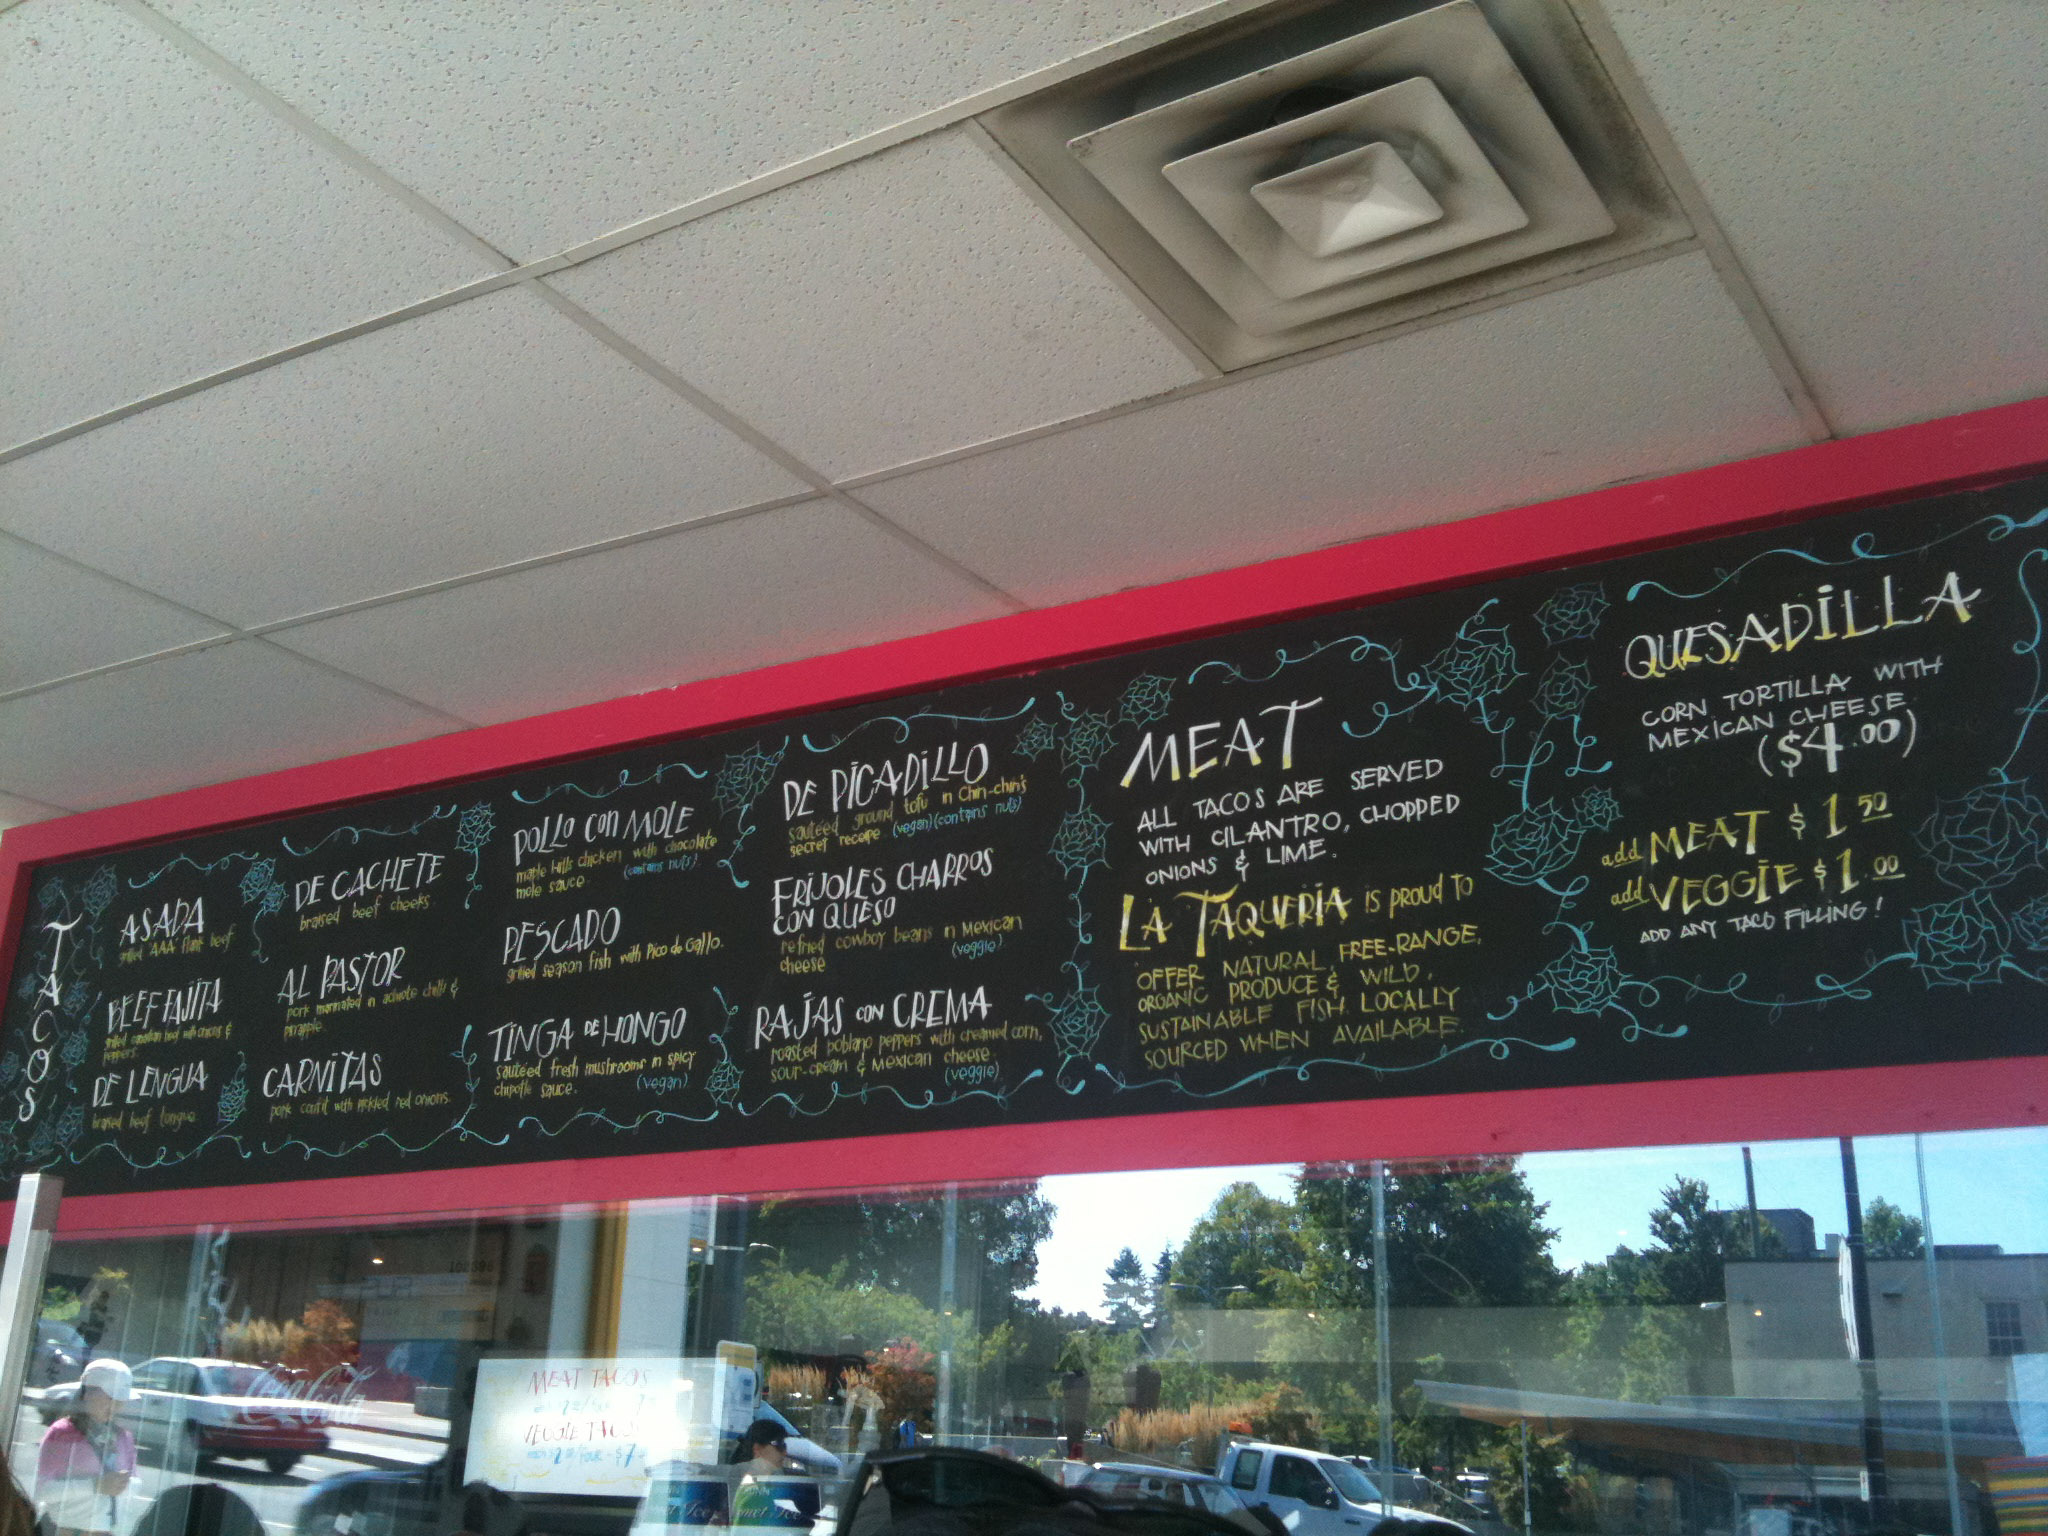 TACOS
ASADA
grilled AAA flank beef.
BEEF FAJITA
grilled canadian beef with onions &
peppers.
DE LENGUA
braised beef tongue.
DE CACHETE
braised beef cheeks.
AL PASTOR
pork marinated in achiote chili's &
pineapple.
CARNITAS
pork confit with pickled red onions.
POLLO con MOLE
maple hills chicken with chocolate
mole sauce. (contains nuts).
PESCADO
grilled season fish with Pico de Gallo.
TINGA DE HONGO
sautéed fresh mushrooms in spicy
chipotle sauce. (vegan)
DE PICADILLO
sautéed ground tofu in Chin-chin's
secret recipe (vegan) (contains nuts)
FRIJOLES CHARROS
CON QUESO
refried cowboy beans in Mexican
cheese (veggie)
RAJAS con CREMA
roasted poblano peppers with creamed corn,
sour-cream & Mexican cheese.
(veggie)
MEAT
ALL TACOS ARE SERVED
WITH CILANTRO, CHOPPED
ONIONS & LIME.
LA TAQUERIA is proud to
OFFER NATURAL, FREE-RANGE,
ORGANIC PRODUCE & WILD,
SUSTAINABLE FISH. LOCALLY
SOURCED WHEN AVAILABLE.
QUESADILLA
CORN TORTILLA WITH
MEXICAN CHEESE.
($4.00)
add MEAT $ 1 50
add VEGGIE $ 1.00
ADD ANY TACO FILLING!
Coca-Cola
MEAT TACOS
VEGGIE TACOS